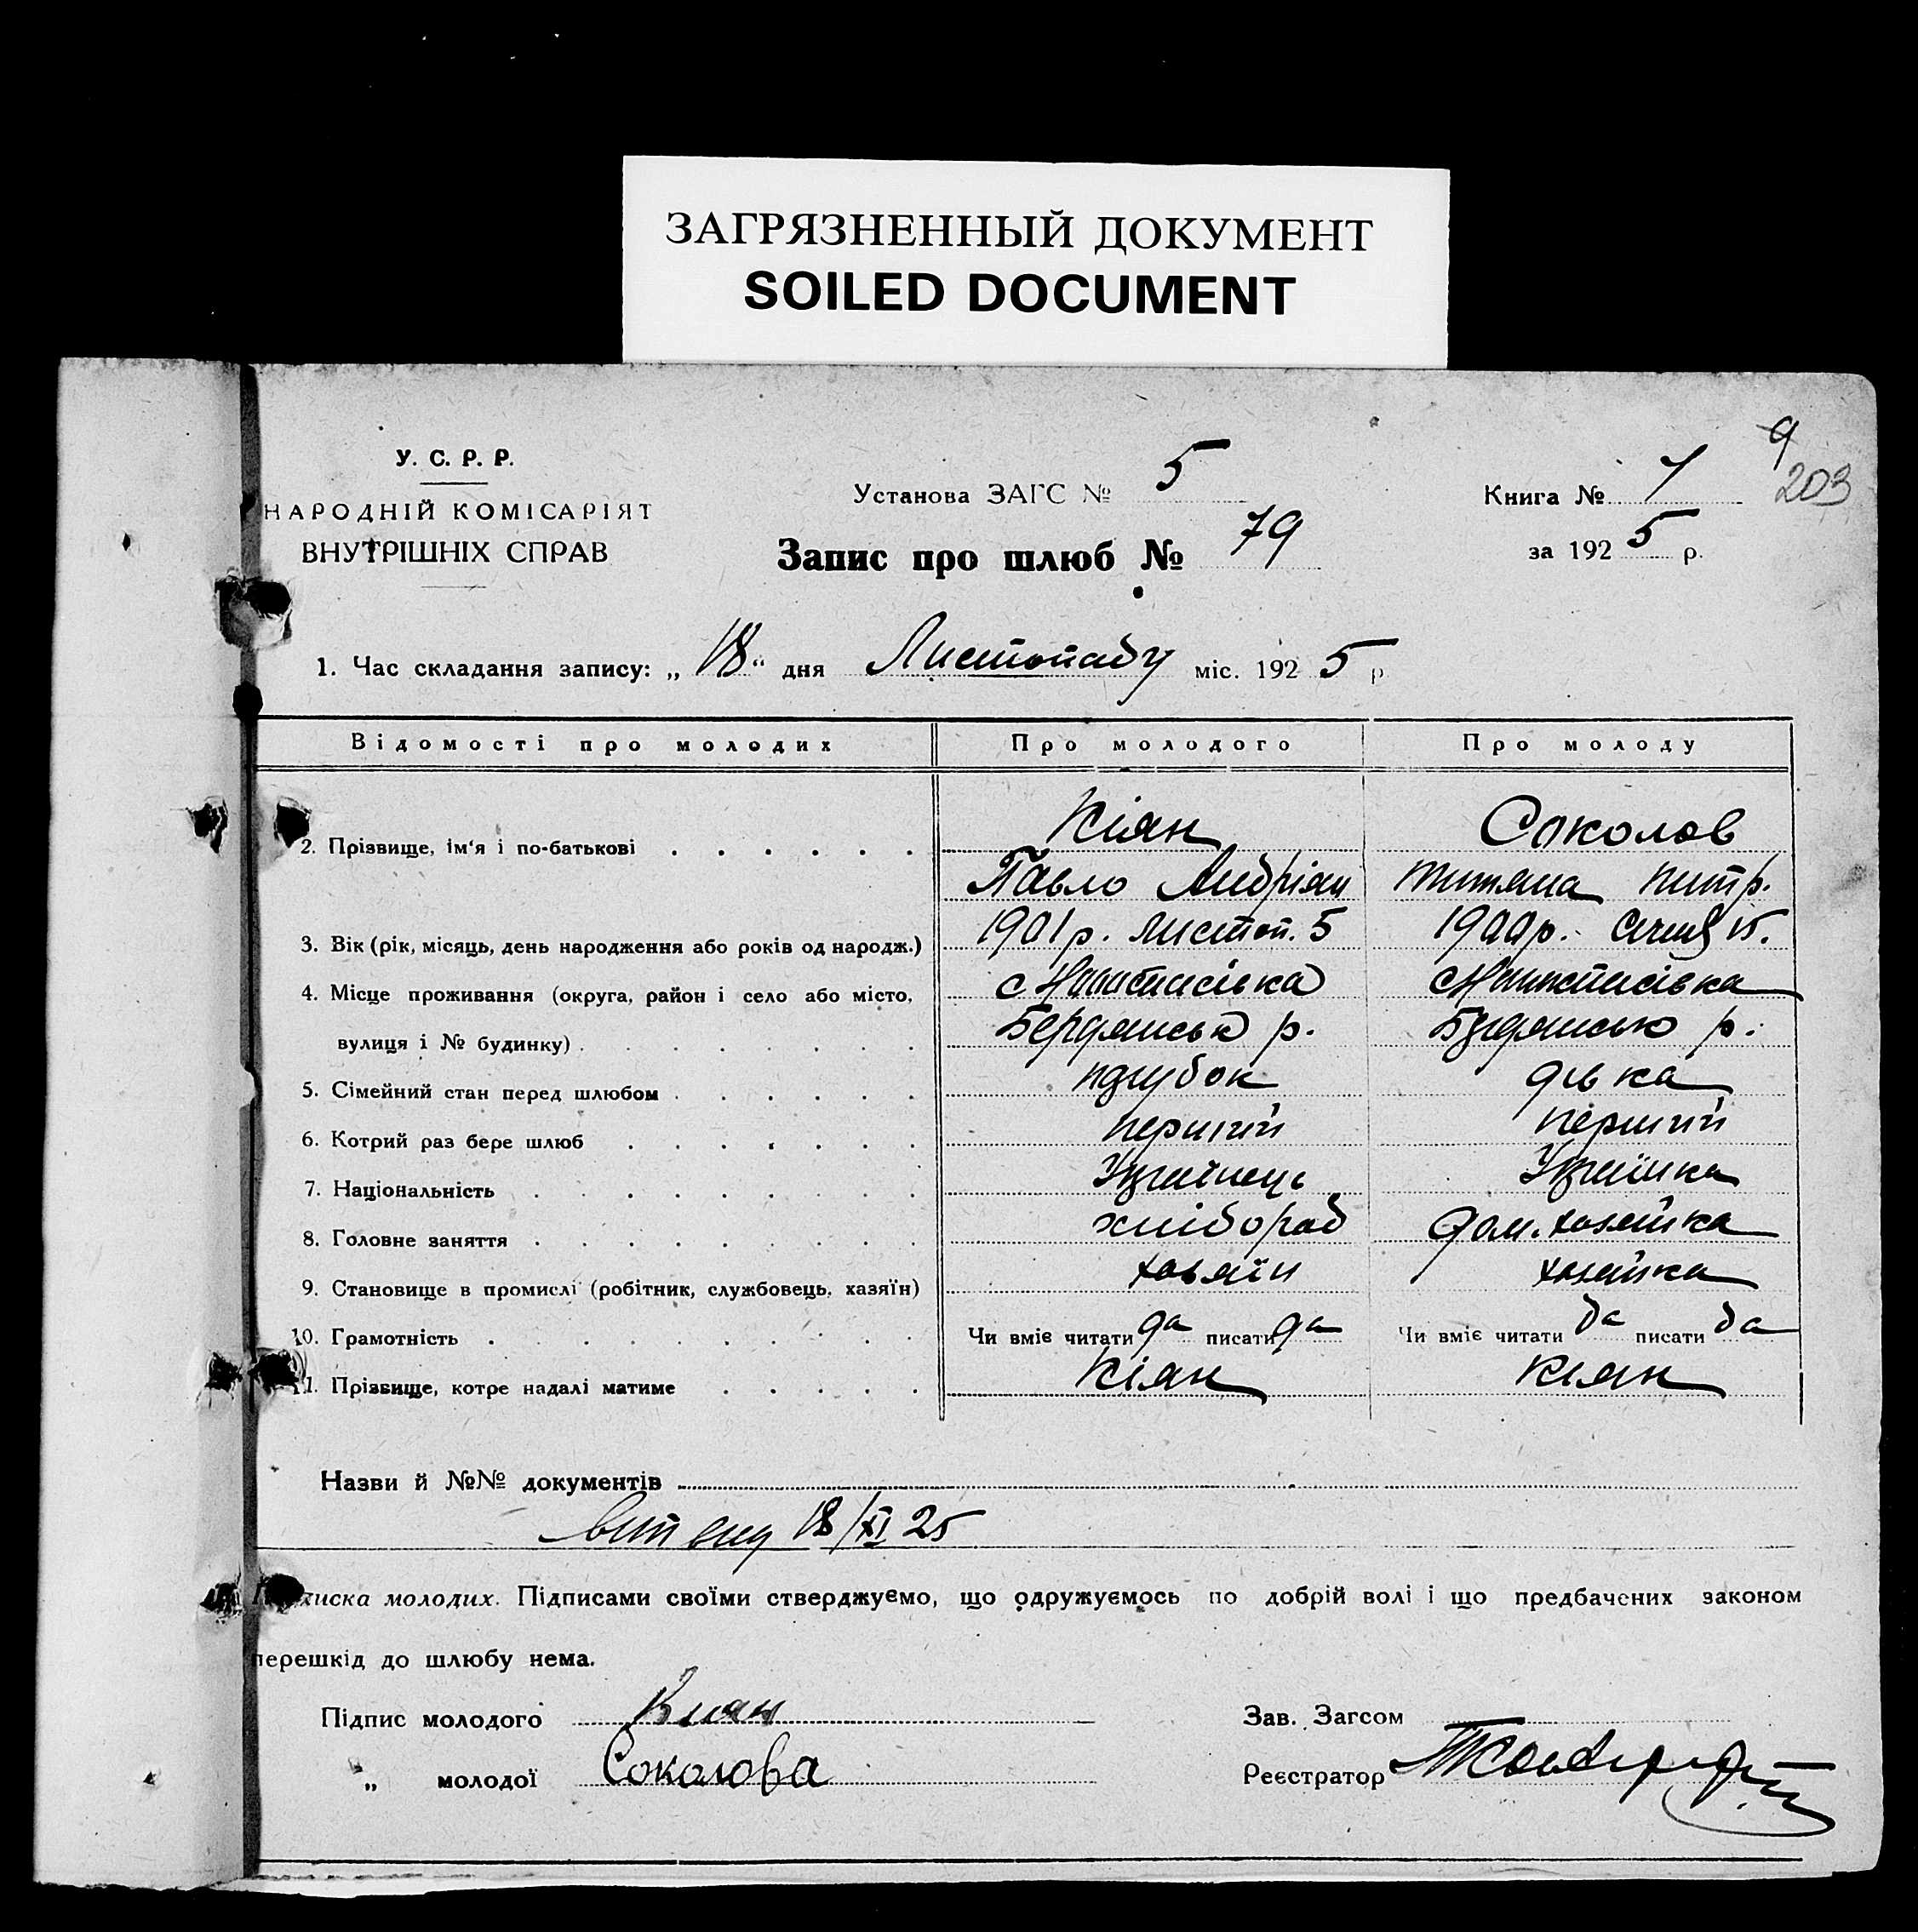 ЗАГРЯЗНЕННЫЙ ДОКУМЕНТ
SOILED DOCUMENT
У. С. Р. Р.
НАРОДНІЙ КОМІСАРІЯТ
ВНУТРІШНІХ СПРАВ
Установа ЗАГС № 5
Запис про шлюб № 79
Книга № 1
за 1925 р.
9
203
1. Час складання запису: „18“ дня Листопаду міс. 1925 р
Відомості про молодих Про молодого Про молоду
Кіян Соколов
2. Прізвище, ім'я і по-батькові
Павло Андріян Титяна Питр.
3. Вік (рік, місяць, день народження або років од народж.) 1901 р. Листоп. 5 1900 р. Січня 15.
4. Місце проживання (округа, район і село або місто,
вулиця і № будинку) Бердянськ р. Бердянськ р.
5. Сімейний стан перед шлюбом парубок дівка
6. Котрий раз бере шлюб перший перший
7. Національність Українець Українка
8. Головне заняття хлібороб дом. хозяйка
9. Становище в промислі (робітник, службовець, хазяїн) хозяїн хозяйка
10. Грамотність Чи вміє читати да писати да Чи вміє читати да писати да
11. Прізвище, котре надалі матиме Кіян Кіян
Назви й №№ документів
18/XI 25
иска молодих. Підписами своїми стверджуємо, що одружуємось по добрій волі і що предбачених законом
перешкід до шлюбу нема.
Підпис молодого Киян
Зав. Загсом
„ молодої Соколова
Реєстратор